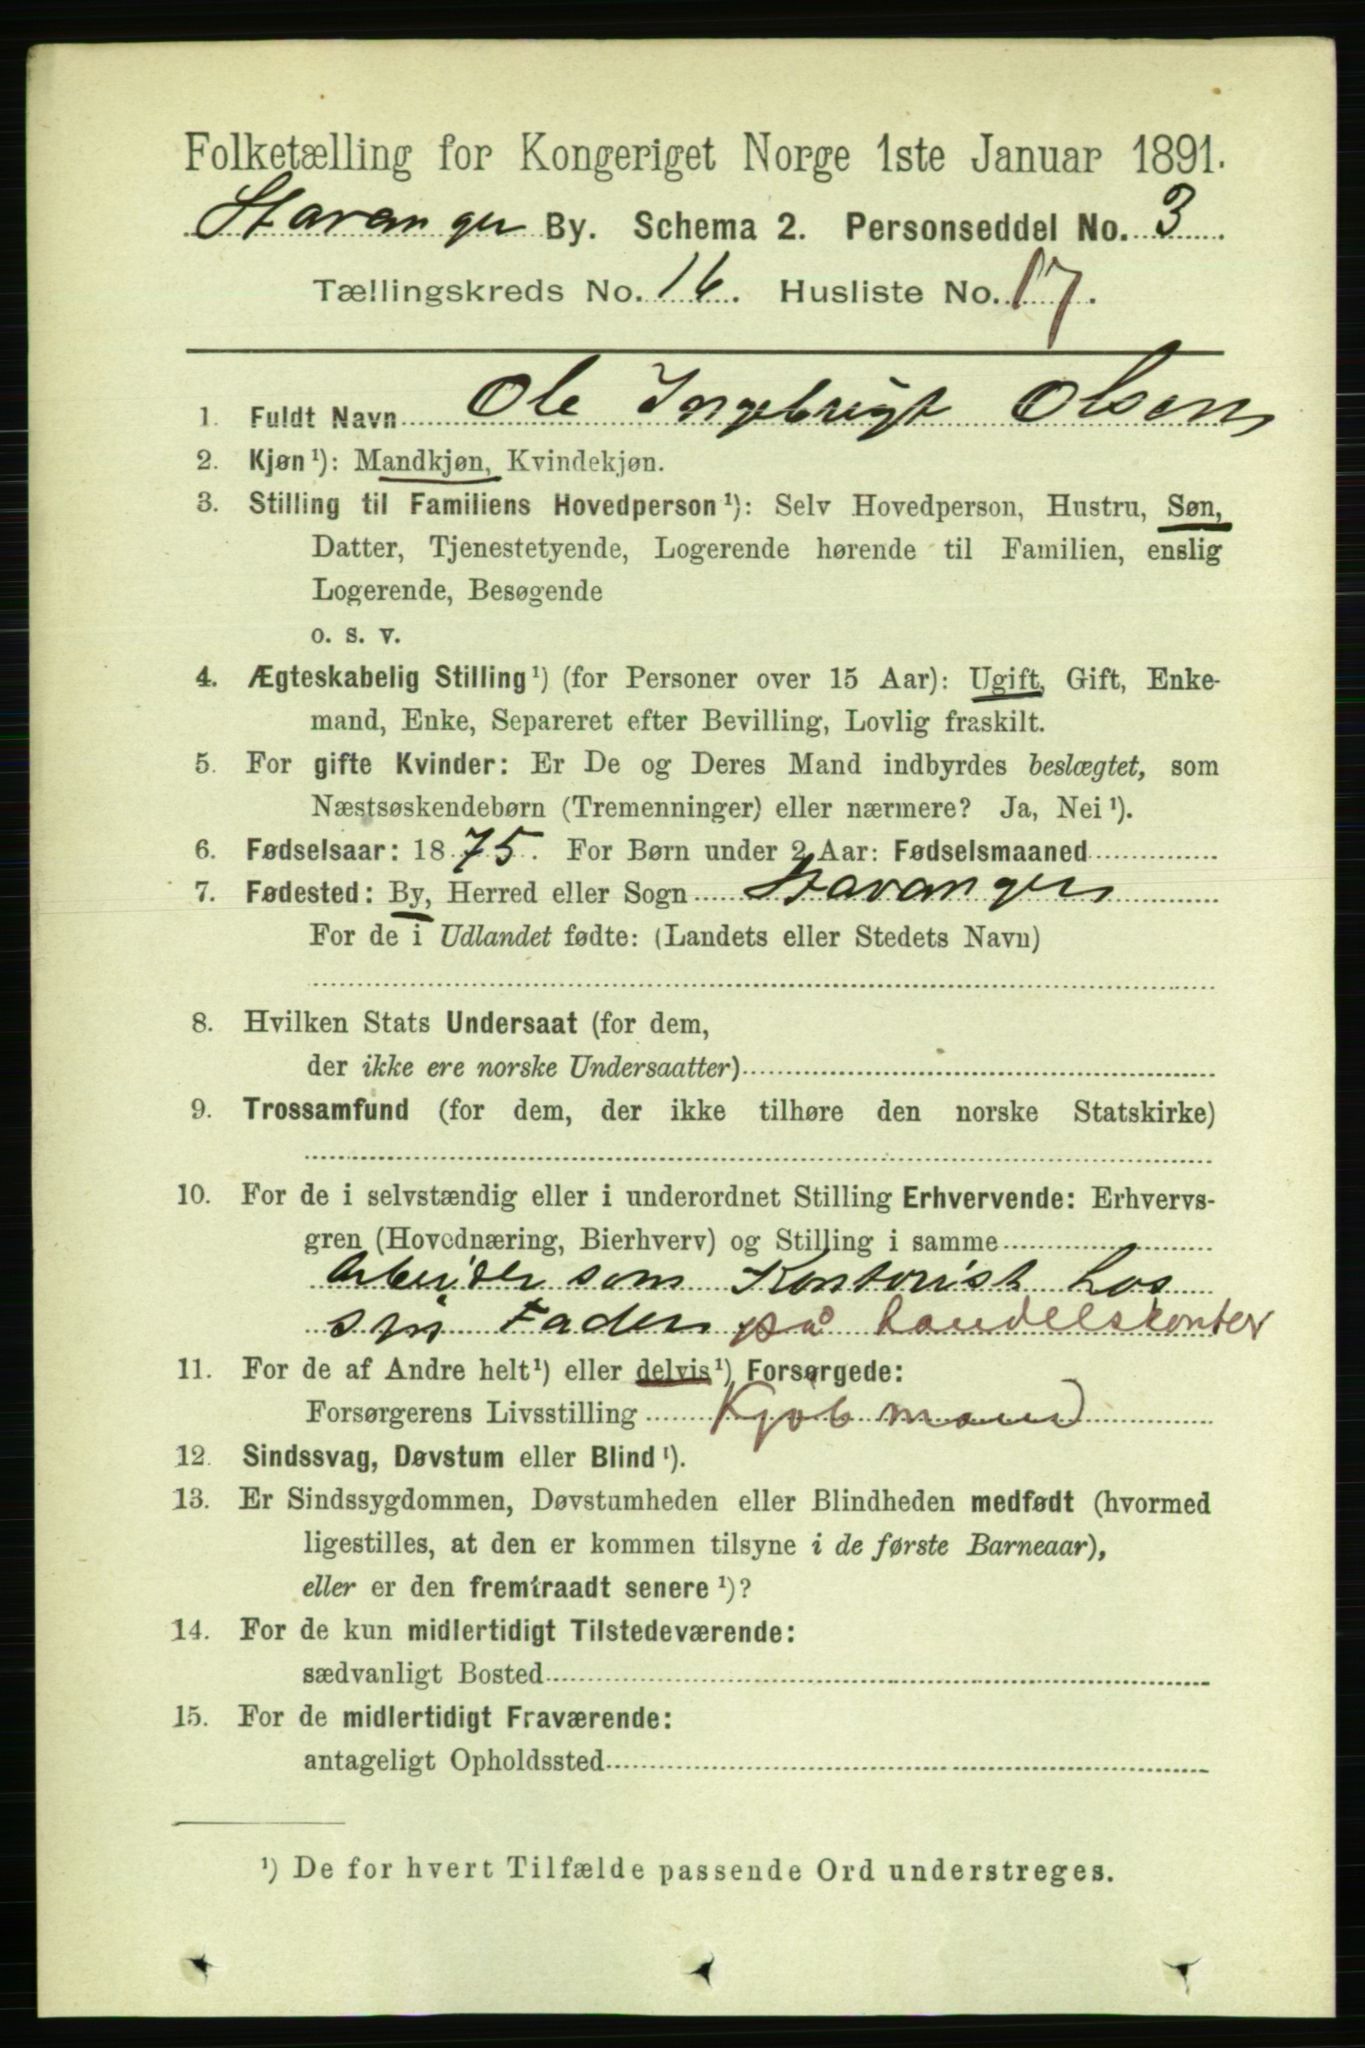 Folketælling for Kongeriget Norge 1ste Januar 1891.
Stavanger By. Schema 2. Personseddel No. 3
Tællingskreds No. 16. Husliste No. 17.
1. Fuldt Navn Ole Ingebrigt Olsen
2. Kjøn¹): Mandkjøn, Kvindekjøn.
3. Stilling til Familiens Hovedperson¹): Selv Hovedperson, Hustru, Søn,
Datter, Tjenestetyende, Logerende hørende til Familien, enslig
Logerende, Besøgende
o. s. v.
4. Ægteskabelig Stilling¹) (for Personer over 15 Aar): Ugift, Gift, Enke-
mand, Enke, Separeret efter Bevilling, Lovlig fraskilt.
5. For gifte Kvinder: Er De og Deres Mand indbyrdes beslægtet, som
Næstsøskendebørn (Tremenninger) eller nærmere? Ja, Nei¹).
6. Fødselsaar: 1875. For Børn under 2 Aar: Fødselsmaaned
7. Fødested: By, Herred eller Sogn Stavanger
For de i Udlandet fødte: (Landets eller Stedets Navn)
8. Hvilken Stats Undersaat (for dem,
der ikke ere norske Undersaatter)
9. Trossamfund (for dem, der ikke tilhøre den norske Statskirke)
10. For de i selvstændig eller i underordnet Stilling Erhvervende: Erhvervs-
gren (Hovednæring, Bierhverv) og Stilling i samme
Arbeider som Kontorist hos
sin Fader på handelskontor
11. For de af Andre helt¹) eller delvis¹) Forsørgede:
Forsørgerens Livsstilling Kjøbmand
12. Sindssvag, Døvstum eller Blind¹).
13. Er Sindssygdommen, Døvstumheden eller Blindheden medfødt (hvormed
ligestilles, at den er kommen tilsyne i de første Barneaar),
eller er den fremtraadt senere¹)?
14. For de kun midlertidigt Tilstedeværende:
sædvanligt Bosted
15. For de midlertidigt Fraværende:
antageligt Opholdssted
¹) De for hvert Tilfælde passende Ord understreges.